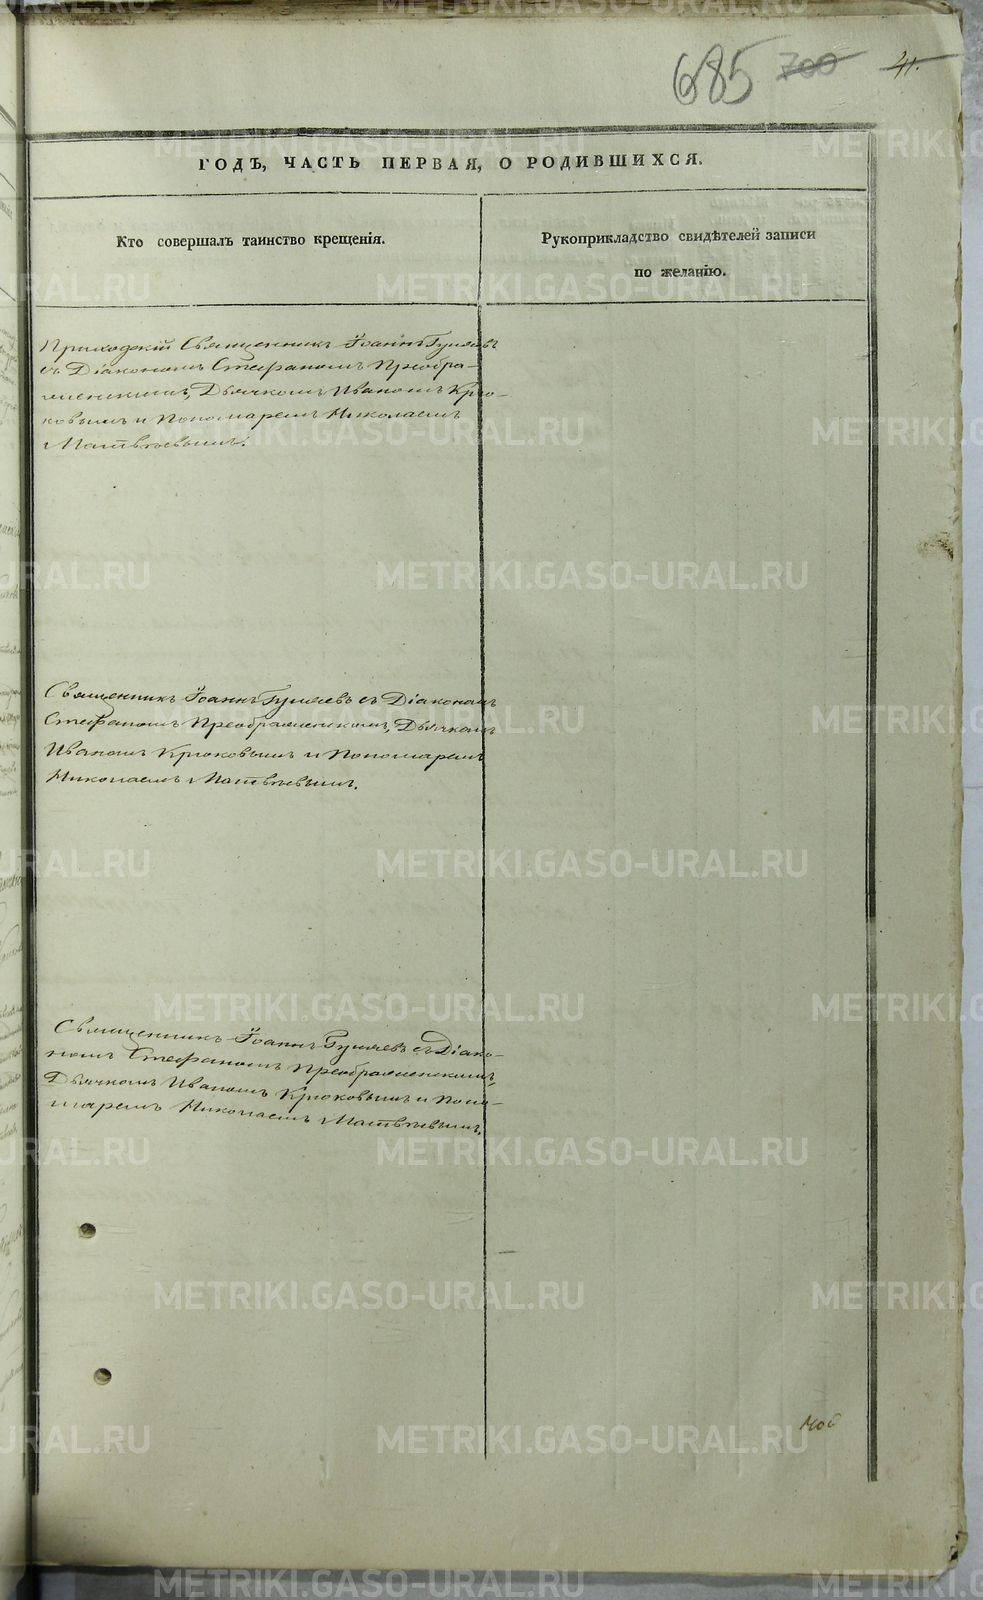 685 700 41.
ГОДЪ, ЧАСТЬ ПЕРВАЯ, О РОДИВШИХСЯ.
Кто совершалъ таинство крещенія.
Рукоприкладство свидѣтелей записи
по желанію.
Приходскій Священникъ Іоаннъ Гуляевъ
съ Діакономъ Стефаномъ Преобра-
женскимъ, Дьячкомъ Иваномъ Крю-
ковымъ и Пономаремъ Николаемъ
Матвѣевымъ.
Священникъ Іоаннъ Гуляевъ съ Діакономъ
Стефаномъ Преображенскимъ, Дьячкомъ
Иваномъ Крюковымъ и Пономаремъ
Николаемъ Матвѣевымъ.
Священникъ Іоаннъ Гуляевъ съ Діако-
номъ Стефаномъ Преображенскимъ,
Дьячкомъ Иваномъ Крюковымъ и Поно-
маремъ Николаемъ Матвѣевымъ.
METRIKI.GASO-URAL.RU